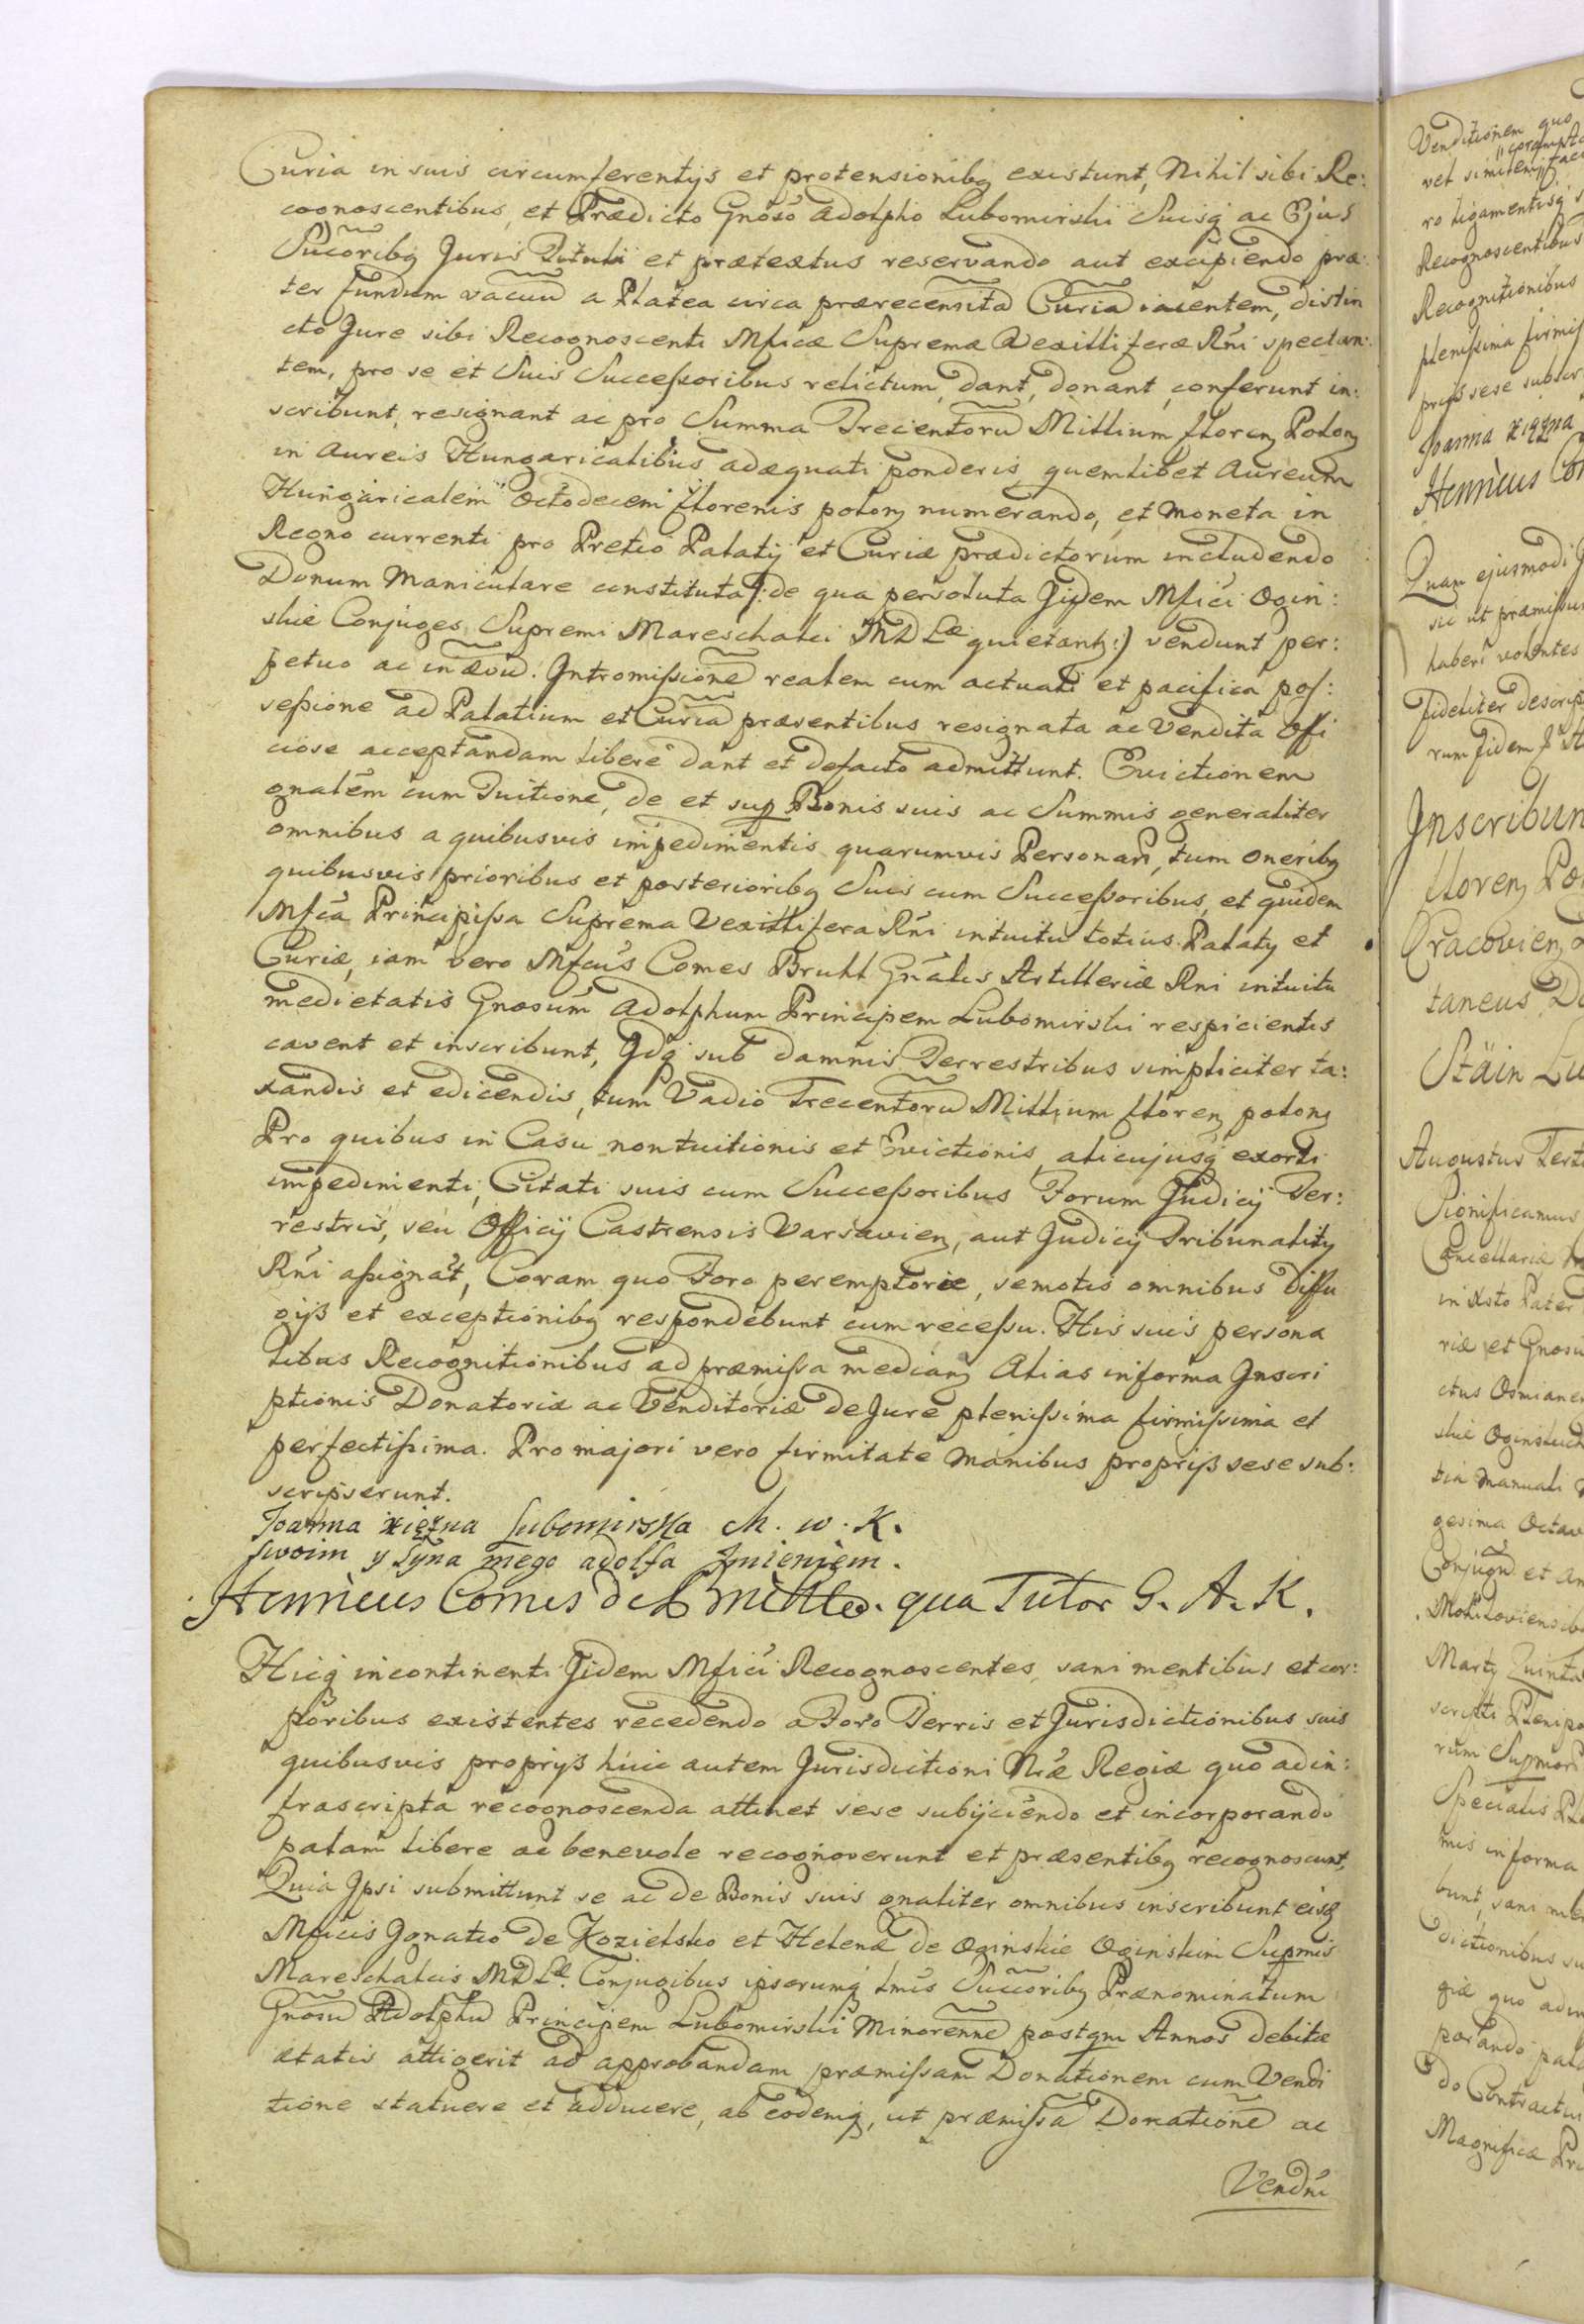 Curia in suis circumferentijs et protensionibq existunt, Nihil sibi Re:
cognoscentibus, et Prædicto Gnoso Adolpho Lubomirski Suisq ac Ejus
Sucoribq Juris Tituli et prætextus reservando aut excipiendo præ:
ter fundum vacuu a Platea circa prærecensita Curia iacentem, distin
cto Jure sibi Recognoscenti Mficæ Supremæ Vexilliferæ Rni spectan:
tem, pro se et Suis Successoribus relictum, dant, donant, conferunt in:
scribunt, resignant ac pro Summa Trecentoru Millium floreng Polong
in Aureis Hungaricalibus adæquati ponderis, quemlibet Aureum
Hungaricalem Octodecem florenis polong numerando, et Moneta in
Regno currenti pro Pretio Palatij et Curiæ prædictorum includendo
Donum Maniculare constituta /: de qua persoluta Jidem Mfici Ogin:
skie Conjuges Supremi Mareschalci M D Læ quietant :) vendunt per:
petuo ac in ævu. Intromissione realem cum actuali et pacifica pos:
sessione ad Palatium et Curia præsentibus resignata ac Vendita Offi
ciose acceptandam libere dant et defacto admittunt. Evictionem
gnalem cum Tuitione, de et sup Bonis suis ac Summis generaliter
omnibus a quibusvis impedimentis quarumvis Personar, tum oneribq
quibusvis prioribus et posterioribq Suis cum Successoribus, et quidem
Mfca Principissa Suprema Vexillifera Rni intuitu totius Palaty et
Curiæ, iam vero Mfcus Comes Bruhl Gnalis Artilleriæ Rni intuitu
medietatis Gnosum Adolphum Principem Lubomirski respicientis
cavent et inscribunt, Idq sub Damnis Terrestribus simpliciter ta:
xandis et edicendis, tum Vadio Trecentoru Millium floreng polong
Pro quibus in Casu nontuitionis et Evictionis, alicujusq exorti
impedimenti, Citati suis cum Successoribus Forum Judicij Ter:
restris, seu Officij Castrensis Varsavieng, aut Judicij Tribunalitij
Rni assignat, Coram quo Foro peremptorie, semotis omnibus Diffu
gijs et exceptionibq respondebunt cum recessu. His suis persona
libus Recognitionibus ad præmissa mediang Alias informa Inscri
ptionis Donatoriæ ac Venditoriæ De Jure plenissima firmissima et
perfectissima. Pro majori vero firmitate Manibus proprijs sese sub:
scripserunt.
Joanna xiężna Lubomirska Ch. w. K.
swoim y Syna mego adolfa Jmieniem.
Henricus Comes de Brühl. qua Tutor G. A. K.
Hicq incontinenti Jidem Mfici Recognoscentes, sani mentibus et cor:
poribus existentes recedendo a Foro Terris et Jurisdictionibus suis
quibusvis proprijs huic autem Jurisdictioni Nræ Regiæ quo ad in:
frascripta recognoscenda attinet sese subijciendo et incorporando
palam libere ac benevole recognoverunt et præsentibq recognoscunt,
Quia Ipsi submittunt se ac de Bonis suis gnaliter omnibus inscribunt eisq
Mficis Ignatio de Kozielsko et Helenæ de Oginskie Oginskim Supmis
Mareschalcis M D Læ. Conjugibus ipsorumq lmis Succoribq Prænominatum
Gnosu Adolphu Principem Lubomirski Minorenne postqm Annos Debitæ
ætatis attigerit ad approbandam præmissam Donationem cum Vendi
tione statuere et adducere, ab eodemq, ut præmissa Donatione ac
Vendni
Venditionem quo
coram
vel simile
ro ligamentisq
Recognoscentibus
Recognitionibus
plenissima firmis
prijs sese subscr
Joanna xiężna
Henricus Co
Quam ejusmodi
sic ut præmissu
haberi volentes
fideliter descrip
rum fidem
Inscribun
floreng Po
Cracovieng
taneus
Stäin Lu
Augustus Terti
Significamus
Cancellariæ
in Xsto Pater
riæ et Gnosu
ctus Osmianen
skie Oginskich
tin Manuali
gesima Octav
Conjugu et
Mohiloviensib
Martij Quinta
scripti Plenipo
rum Supmor
Specialis Ple
mis informa
bunt, sani me
dictionibus su
giæ quo adin
porando pala
do Contractu
Magnificæ Pri